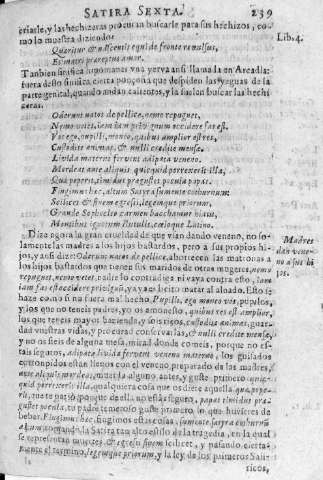 SATIRA SEXTA. 239
criarle, y las hechizeras procuran buscarle para sus hechizos, como
mo lo muestra diziendo: Lib. 4.
Quæritur & nascentis equi de fronte revulsus,
Et matri præreptus amor.
Tambien significa hippomanes una yerva ansi llamada en Arcadia:
fuera desto significa cierta, que despiden las yeguas de la
parte genital, quando andan calientes, y la suelen buscar las hechi
ceras.
Oderunt natos de pellice, nemo repugnet,
Nemo vetet, iam iam privignum occidere fas est.
Vos ego, pupilli, moneo, quibus amplior est res,
Custodite animas, & nulli credite mensæ.
Livida materno fervent adipata veneno.
Mordeat ante aliquis quicquid porrexerit illa,
Quæ peperit, timidus prægustet pocula papas.
Fingimus hæc, altum Satyra sumente cothurnum
Scilicet & finem egressi, legemque priorum,
Grande Sophocleo carmen bacchamur hiatu,
Montibus ignotum Rutulis, cœloque Latino.
Dize agora la gran crueldad de que usan dando veneno, no so-
lamente las madres a los hijos bastardos, pero a sus propios hi-
jos, y ansi dize: Oderunt natos de pellice, aborrecen las matronas a
los hijos bastardos que tienen sus maridos de otras mugeres, nemo
repugnet, nemo vetet: nadie lo contradiga ni vaya contra esto, iam
iam fas est occidere privignum, ya ya es licito matar al alnado. Esto se
haze como si no fuera mal hecho. Pupilli, ego moneo vos, pupilos,
y los que no teneis padres, yo os amonesto, quibus res est amplior,
los que teneis mayor hazienda, y sois ricos, custodite animas, guar-
dad vuestras vidas, y procurad conservarlas, & nulli credite mensæ,
y no os fieis de alguna mesa, mirad donde comeis, porque no es-
tais seguros, adipata livida fervent veneno materno, los guisados
corrompidos estan llenos con el veneno preparado de las madres,
ante aliquis mordeat, muerda alguno antes, y guste primero quic-
quid porrexerit illa, qualquiera cosa que os diere aquella quæ pepe-
rit, que te pariò porque de ella no estàs seguro, papas timidus præ-
gustet pocula, tu padre temeroso guste primero lo que huvieres de
beber. Fingimus hæc, fingimos estas cosas, sumente satyra cothurnum
altum, tomando la Satira tan alto estilo de la tragedia, en la qual
se representan muertes, & egressi finem scilicet, y passando cierta-
mente el termino, legemque priorum, y la ley de los primeros Sati-
ricos,
Madres
dan vene-
no a sus hi
jos.